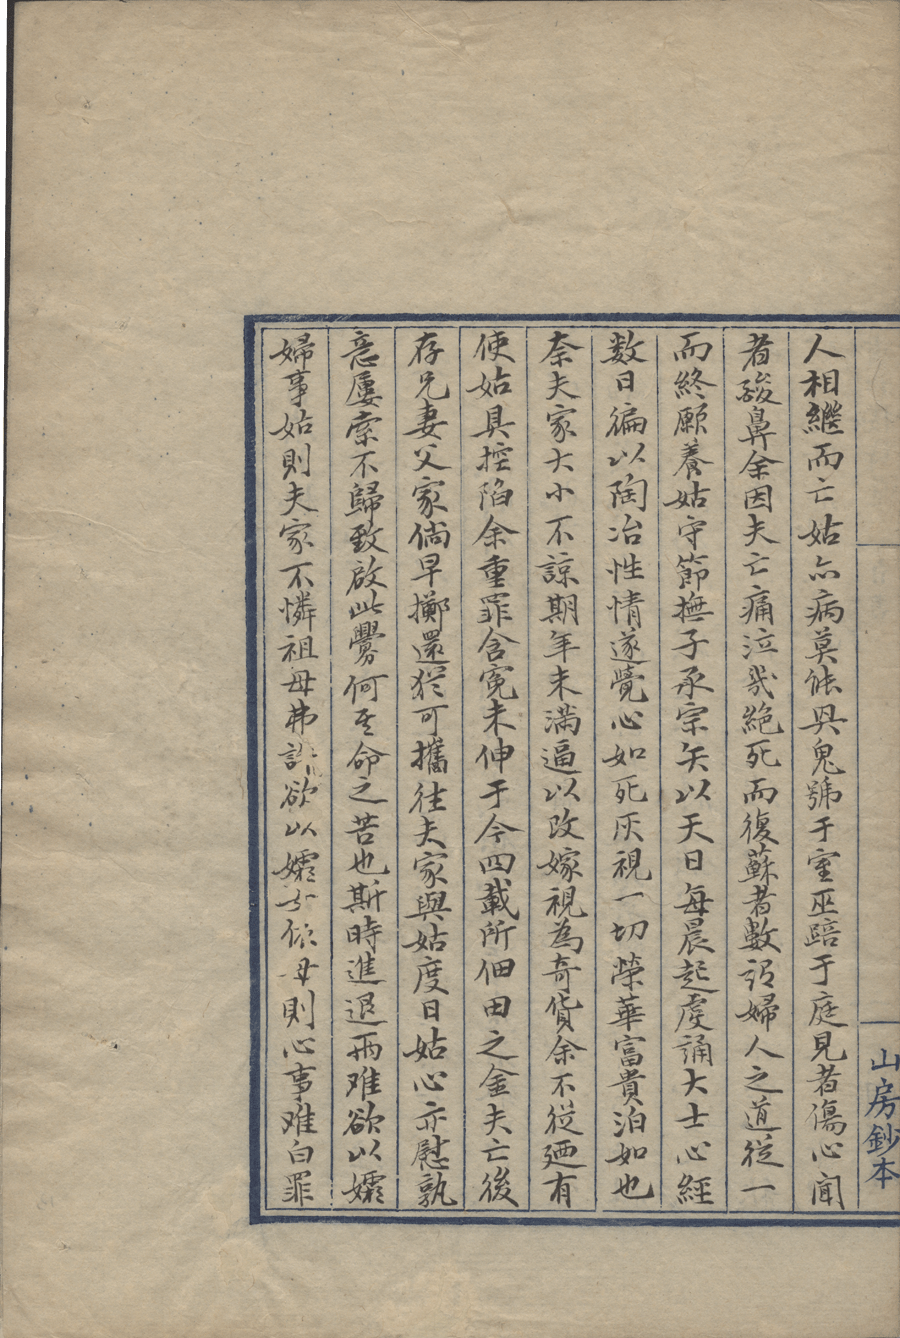 人相繼而亡姑亦病莫能興鬼號于室巫踣于庭見者傷心聞
者酸鼻余因夫亡痛泣幾絕死而復蘇者數詔婦人之道從一
而終願養姑守節撫子承宗矢以天日每晨起虔誦大士心經
数日徧以陶冶性情遂覺心如死灰視一切榮華富貴泊如也
奈夫家大小不諒期年未滿逼以改嫁視為奇貨余不從廼有
使姑具控陷余重罪含冤未伸于今四載所佃田之金夫亡後
存兄妻父家倘早擲還猶可攜往夫家與姑度日姑心亦慰孰
意屢索不歸致啟此釁何其命之苦也斯時進退兩难欲以孀
婦事姑則夫家不憐祖母弗諒欲以孀女依母則心事难白罪
山房鈔本